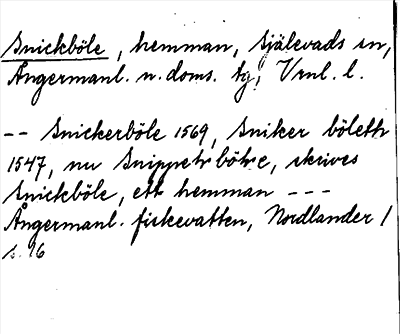 Snickböle, hemman, Själevads sn,
Ångermanl. n. doms. tg, Vrnl. l.
-- Snickerböle 1569, Sniker böleth
1547, nu böle, skrives
Snickböle, ett hemman ---
Ångermanl. fiskevatten, Nordlander 1
s. 16